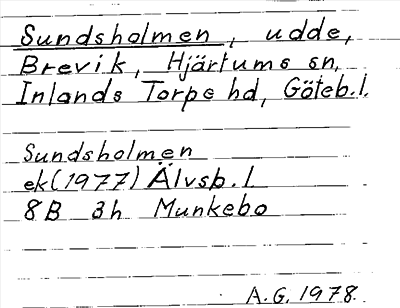 Sundsholmen, udde,
Brevik, Hjärtums sn,
Inlands Torpe hd, Göteb.l.
Sundsholmen
ek(1977) Älvsb.l.
8B 3h Munkebo
A.G. 1978.